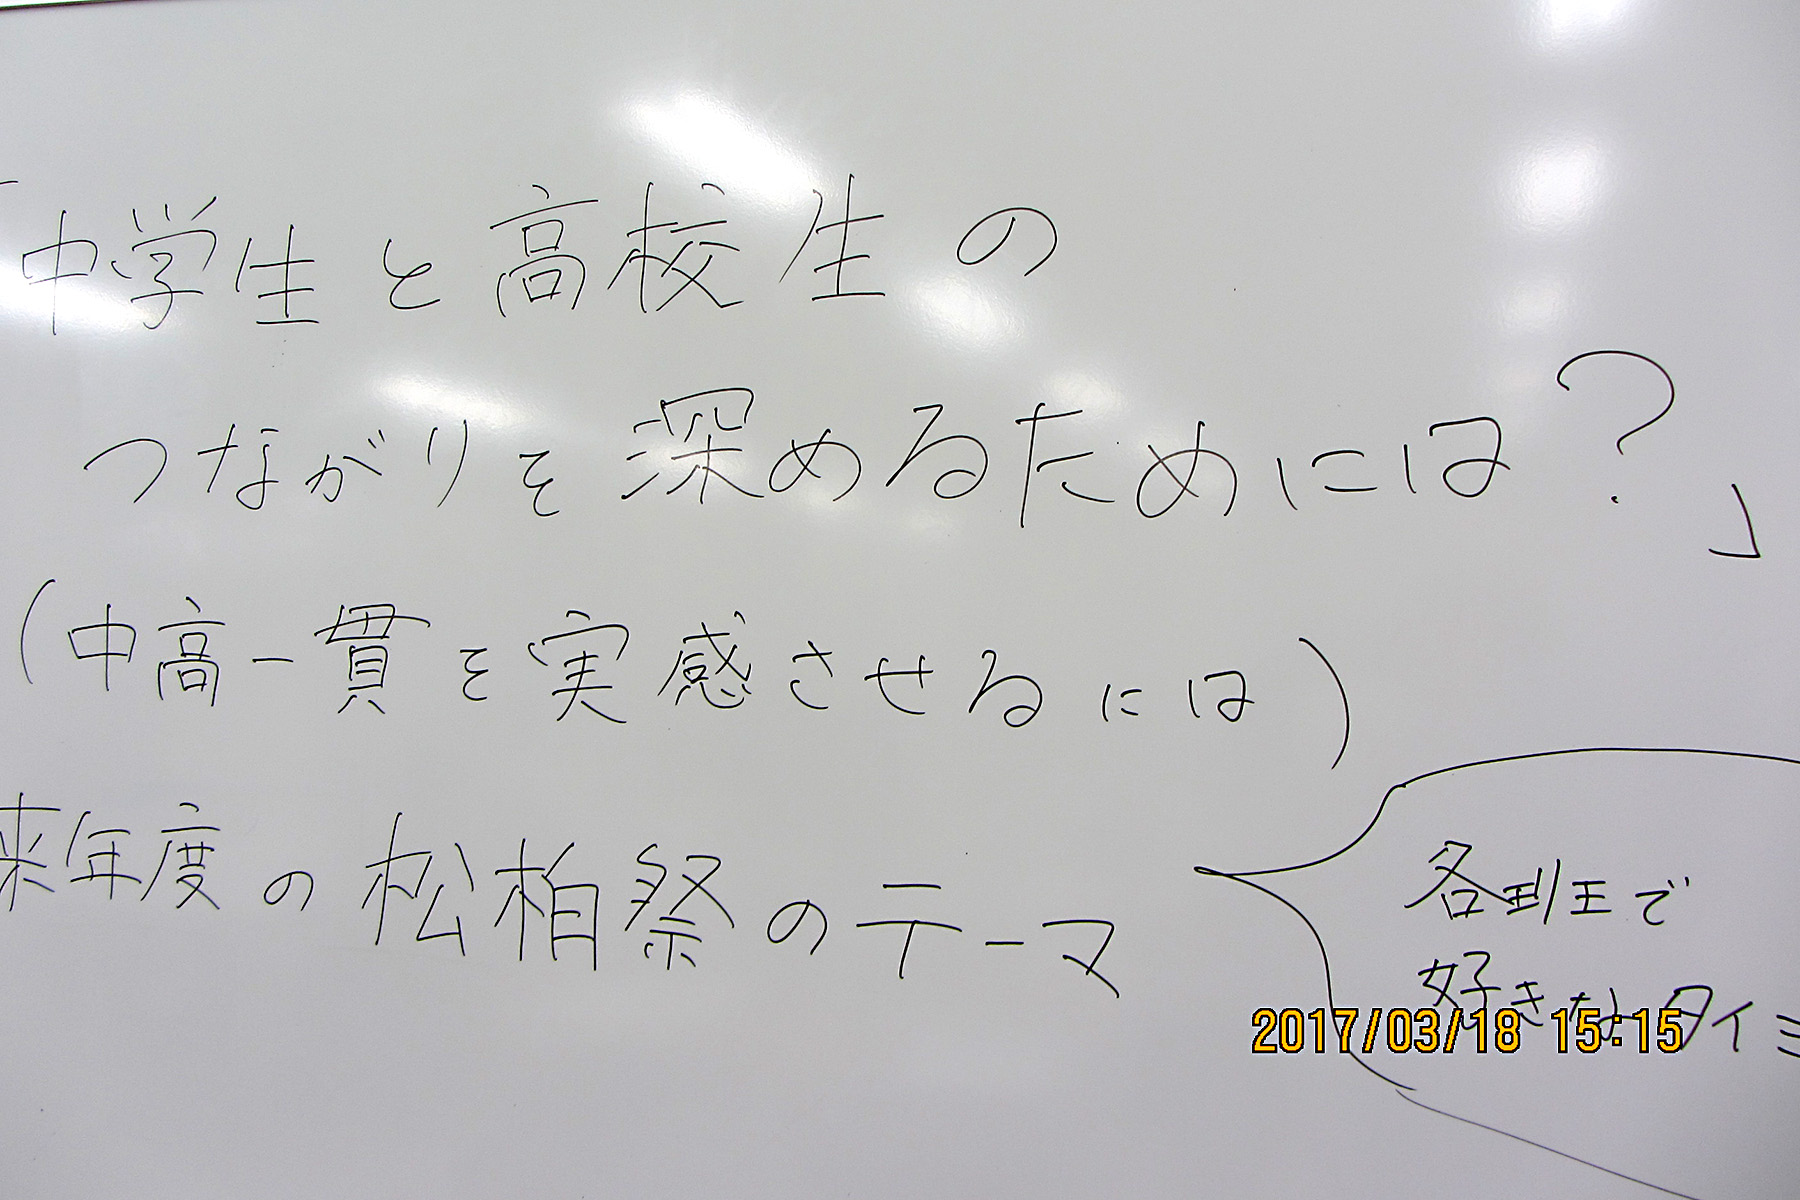 「中学生と高校生の
つながりを深めるためには?」
(中高一貫を実感させるには)
来年度の松柏祭のテーマ
各班で
好きなタイミ
2017/03/18 15:15